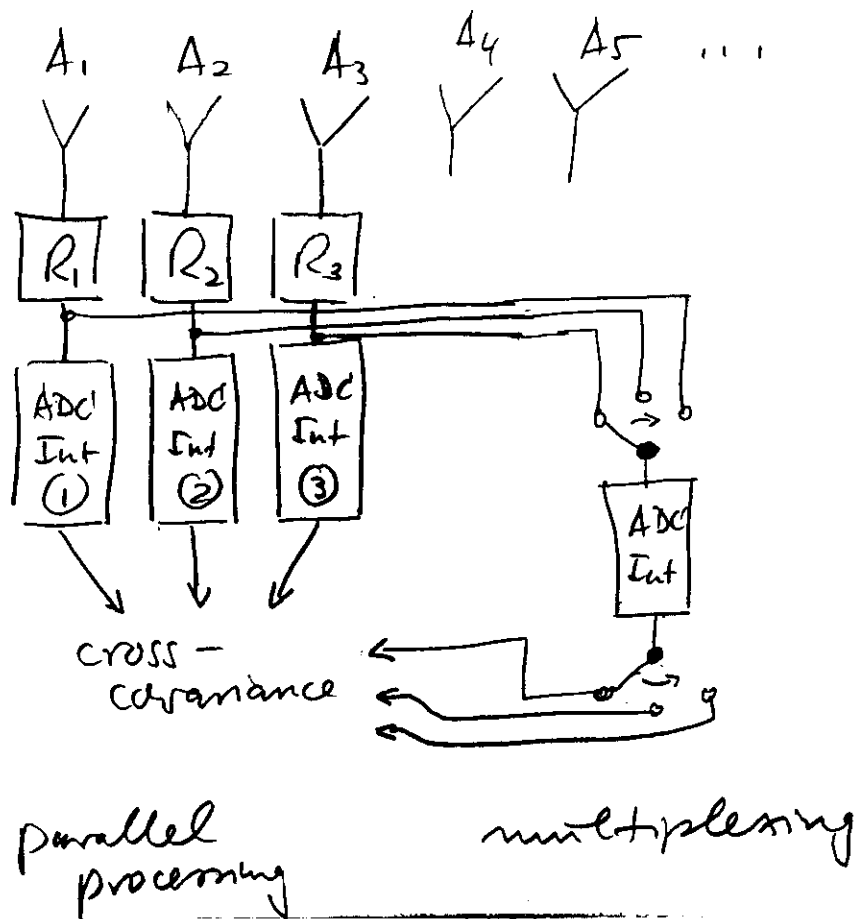 A1 A2 A3 A4 A5 ...
R1 R2 R3
ADC ADC ADC
Int Int Int
1 2 3
ADC
Int
cross-
covariance
parallel
processing
multiplexing